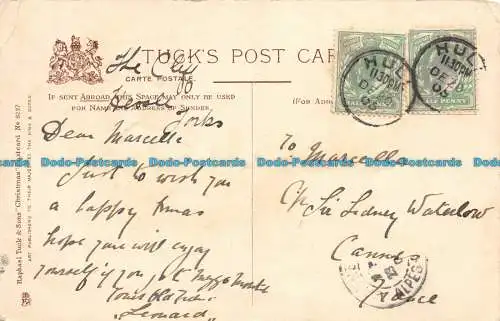 TUCK'S POST CARD
CARTE POSTALE.
IF SENT ABROAD, THIS SPACE MAY ONLY BE USED
FOR NAME AND ADDRESS OF SENDER.
(FOR
The
Hessle
Yorks
Dear Marcella
Just to wish you
a happy Xmas
hope you will enjoy
yourself if you get
Yours
"Leonard"
To Marcella
C/o Sir Sidney Waterlow
Cannes
France
HULL
11.30PM
DE
HULL
11.30PM
DE
HALFPENNY
ALPES
Raphael Tuck & Sons' "Christmas" Postcard No 8237
ART PUBLISHERS TO THEIR MAJESTIES THE KING & QUEEN
Dodo-Postcards Dodo-Postcards Dodo-Postcards Dodo-Postcards
Dodo-Postcards Dodo-Postcards Dodo-Postcards Dodo-Postcards